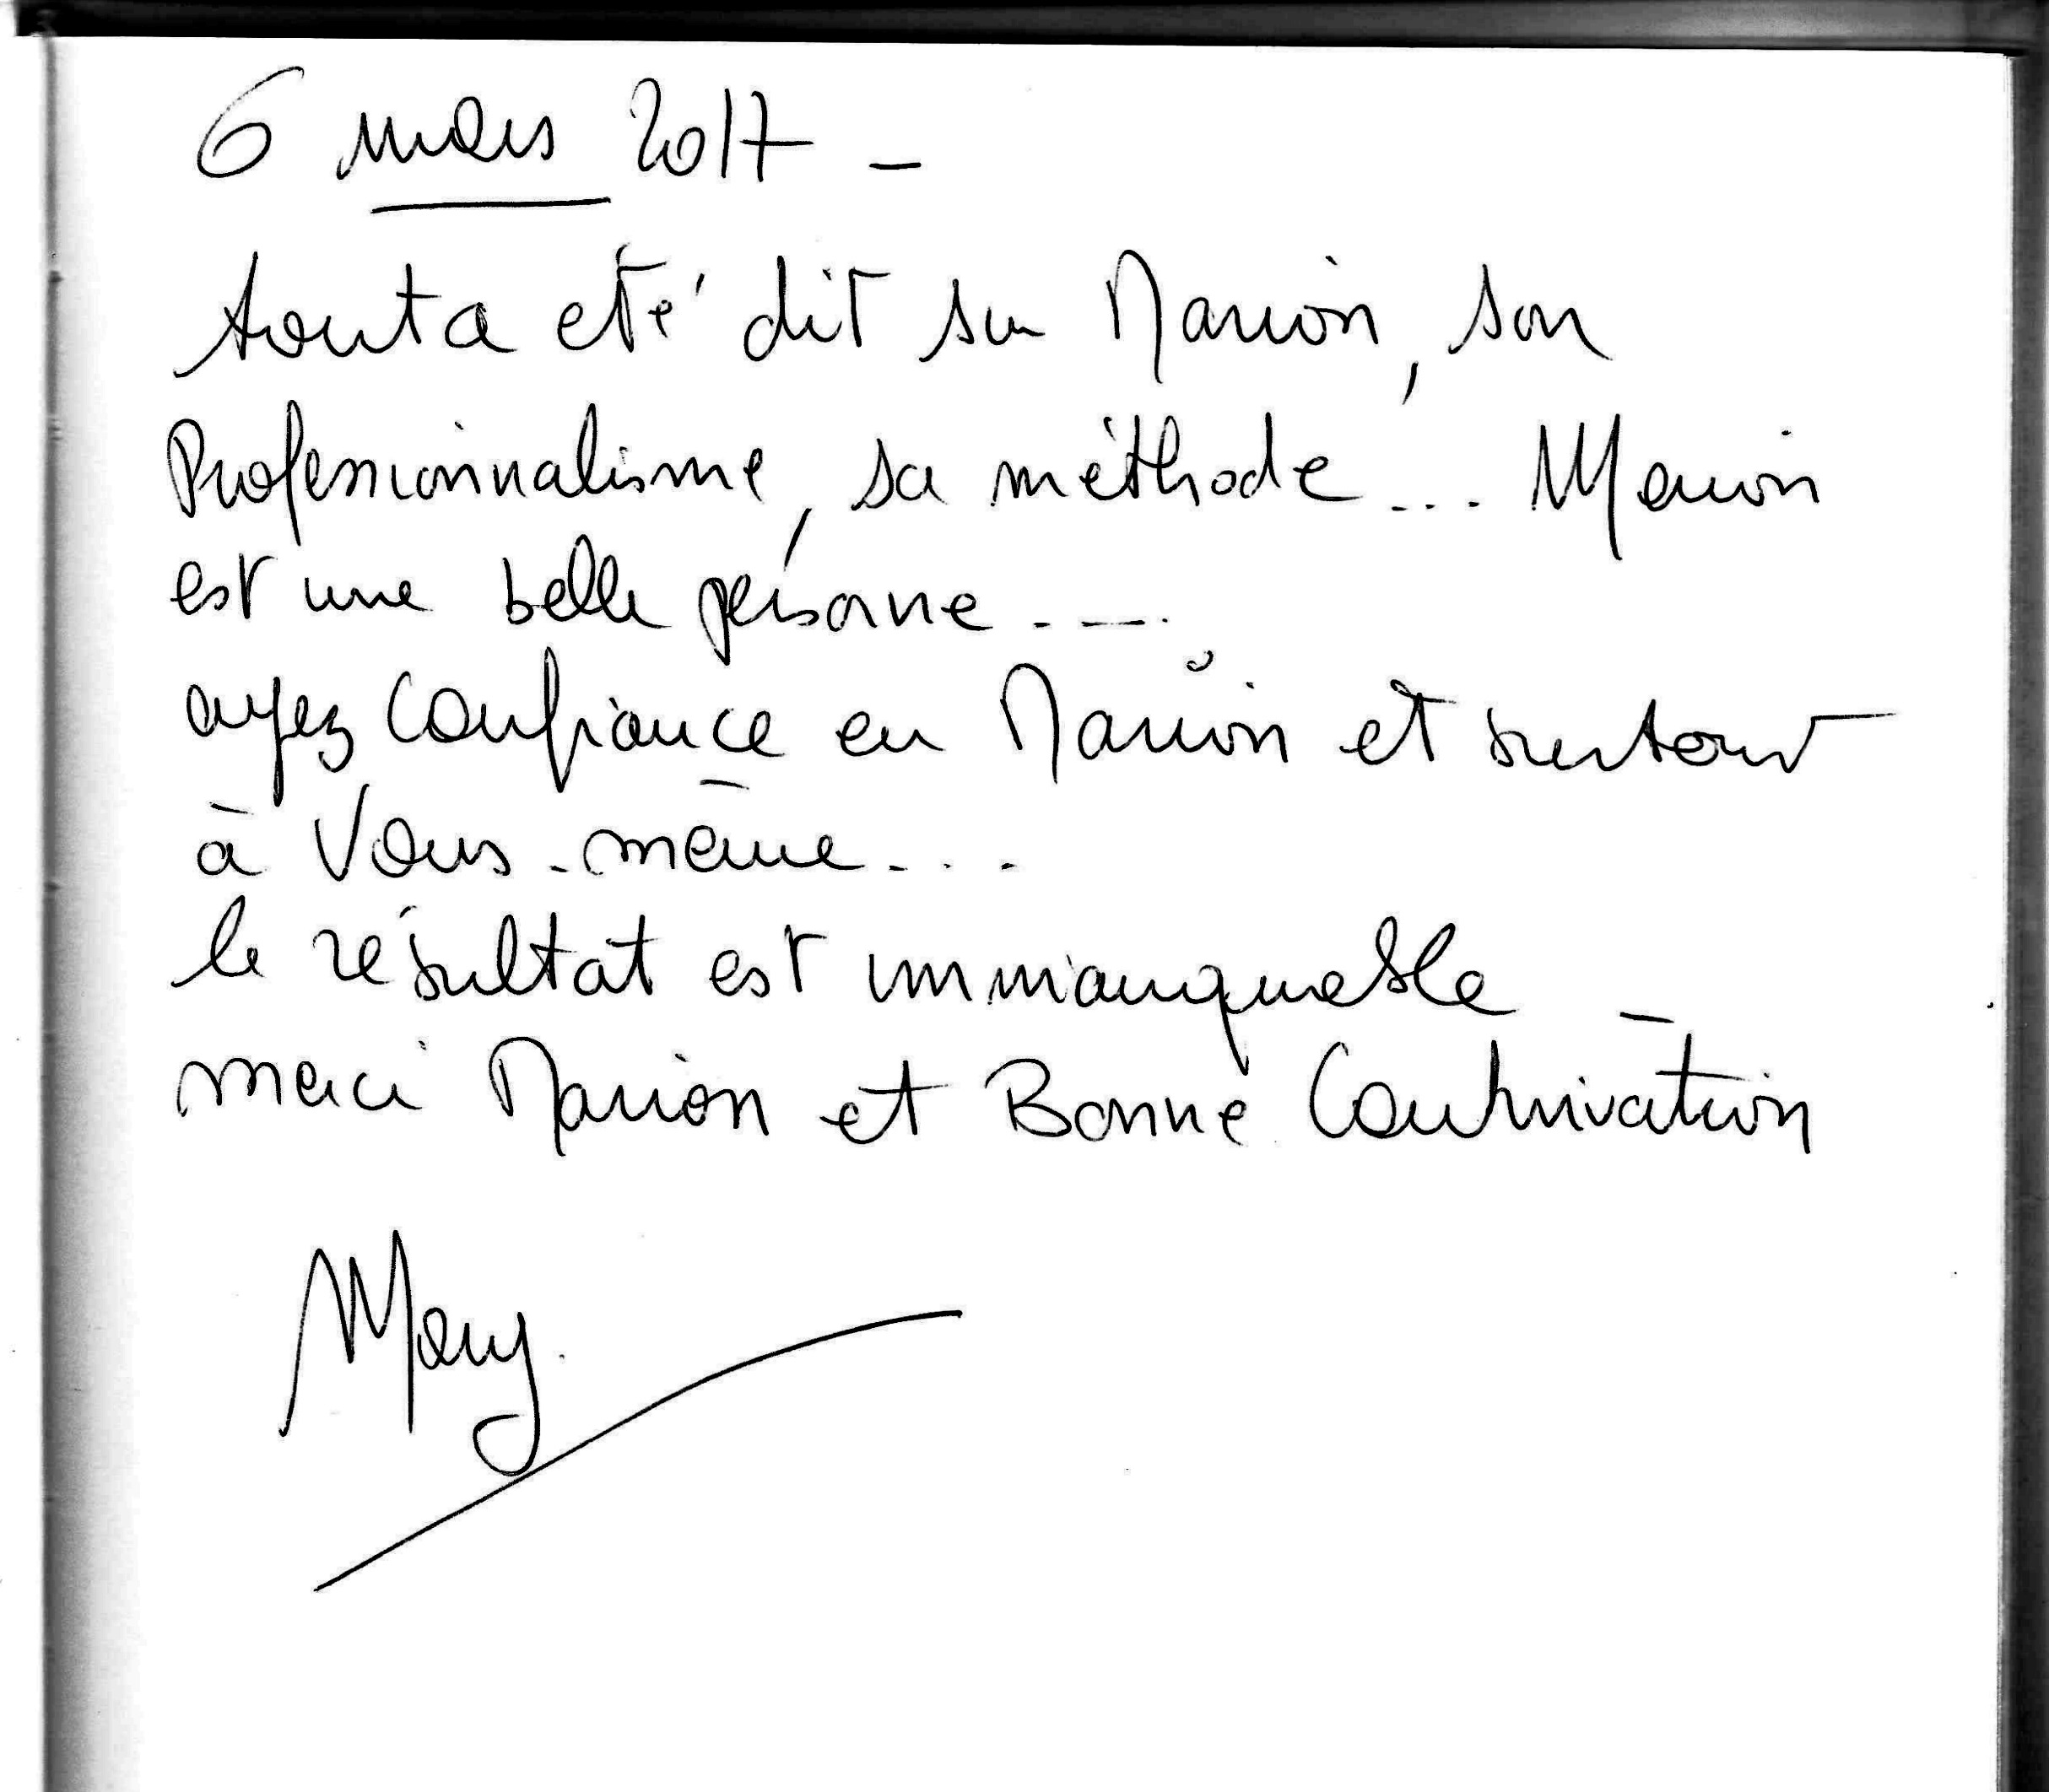 6 mars 2017 -
tout a été dit sur Marion, son
Professionnalisme, sa méthode... Marion
est une belle personne...
ayez confiance en Marion et surtout
à Vous-même...
le résultat est immanquable -
merci Marion et Bonne Continuation
Mary.